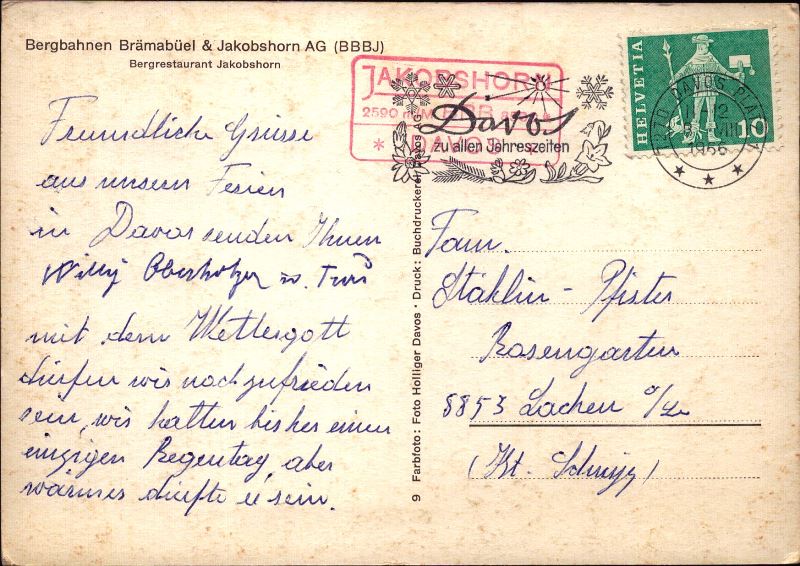 Bergbahnen Brämabüel & Jakobshorn AG (BBBJ)
Bergrestaurant Jakobshorn
JAKOBSHORN
2590 m
DAVOS
Davos
zu allen Jahreszeiten
HELVETIA
10
DAVOS PLATZ
1966
Freundliche Grüsse
aus unsern Ferien
in Davos senden Ihnen
Willy Oberholzer u.
mit dem Wettergott
dürfen wir noch zufrieden
sein, wir hatten bisher einen
einzigen Regentag, aber
wärmer dürfte es sein.
9 Farbfoto: Foto Holliger Davos · Druck: Buchdruckerei Davos AG
Fam.
Stählin - Pfister
Rosengarten
8853 Lachen a/Zu
(Kt. Schwyz)